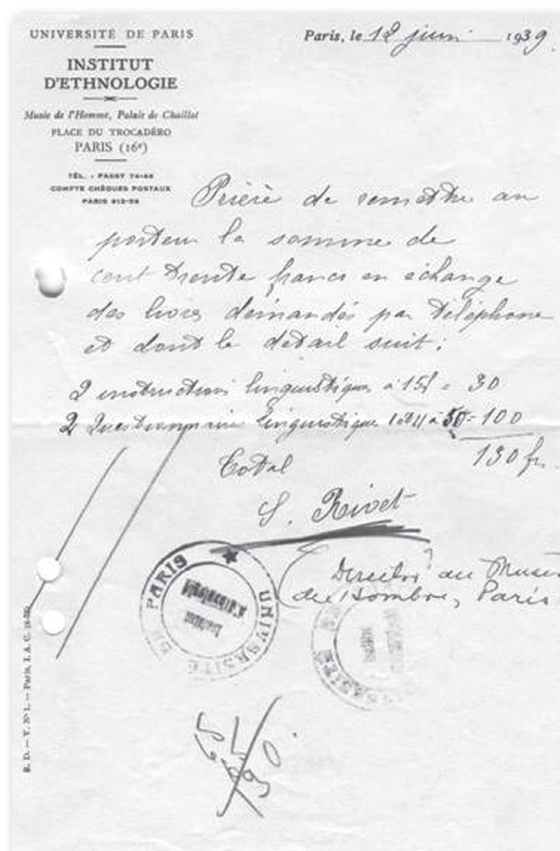 UNIVERSITÉ DE PARIS
INSTITUT
D'ETHNOLOGIE
Musée de l'Homme, Palais de Chaillot
PLACE DU TROCADÉRO
PARIS (16e)
TÉL. : PASSY 74-46
COMPTE CHÈQUES POSTAUX
PARIS 812-96
Paris, le 12 juin 1939.
Prière de remettre au
porteur la somme de
cent trente francs en échange
des livres demandés par téléphone
et dont le detail suit :
2 instructions linguistiques à 15f = 30
2 Questionnaire linguistique I et II à 50 = 100
Total 130 fr.
Rivet
Director du Musée
de Hombre, Paris
UNIVERSITÉ DE PARIS
R. D. — Y. No 1. — Paris, I. A. C.
65